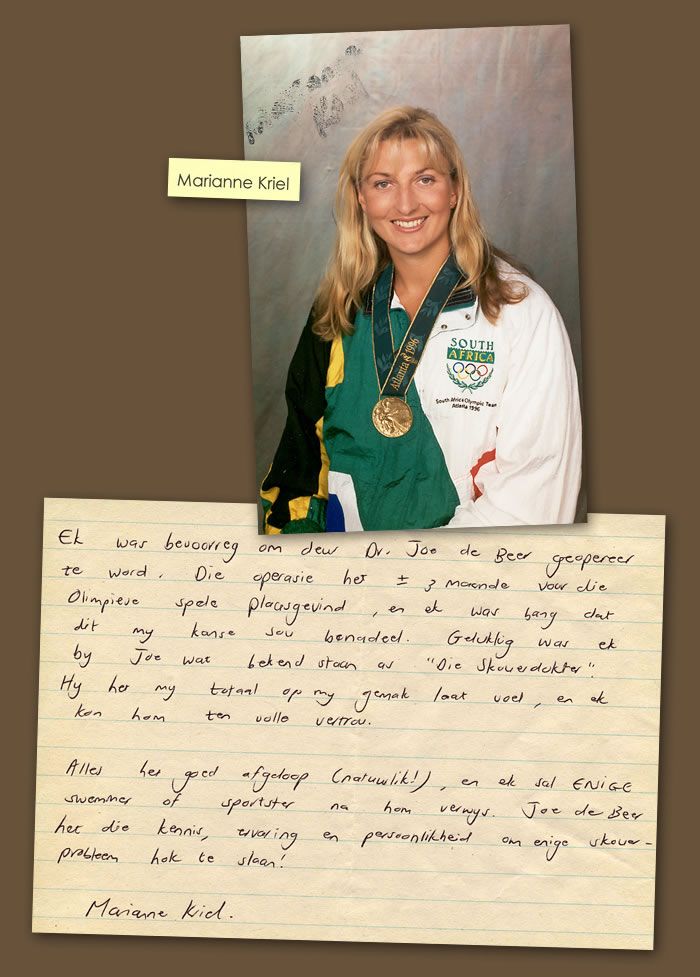 Marianne Kriel
Atlanta 1996
SOUTH
AFRICA
South Africa Olympic Team
Atlanta 1996
Ek was bevoorreg om deur Dr. Joe de Beer geopereer
te word. Die operasie het ± 3 maande voor die
Olimpiese spele plaasgevind, en ek was bang dat
dit my kanse sou benadeel. Gelukkig was ek
by Joe wat bekend staan as "Die Skouerdokter".
Hy het my totaal op my gemak laat voel, en ek
kon hom ten volle vertrou.
Alles het goed afgeloop (natuurlik!), en ek sal ENIGE
swemmer of sportster na hom verwys. Joe de Beer
het die kennis, ervaring en persoonlikheid om enige skouer-
probleem hok te slaan!
Marianne Kriel.